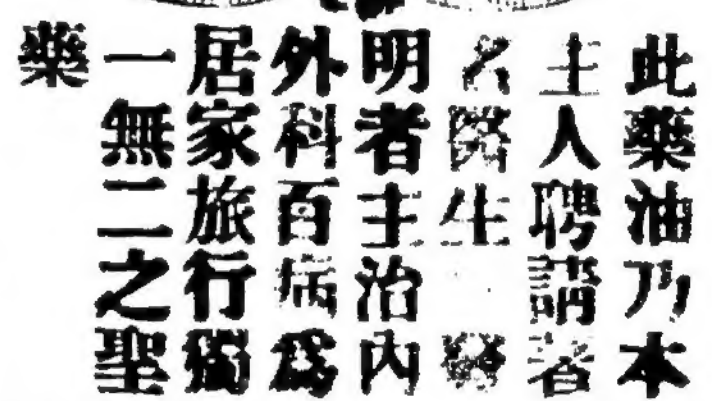 此藥油乃本
主人聘請著
名醫生 發
明者主治內
外科百病爲
居家旅行獨
一無二之聖
藥